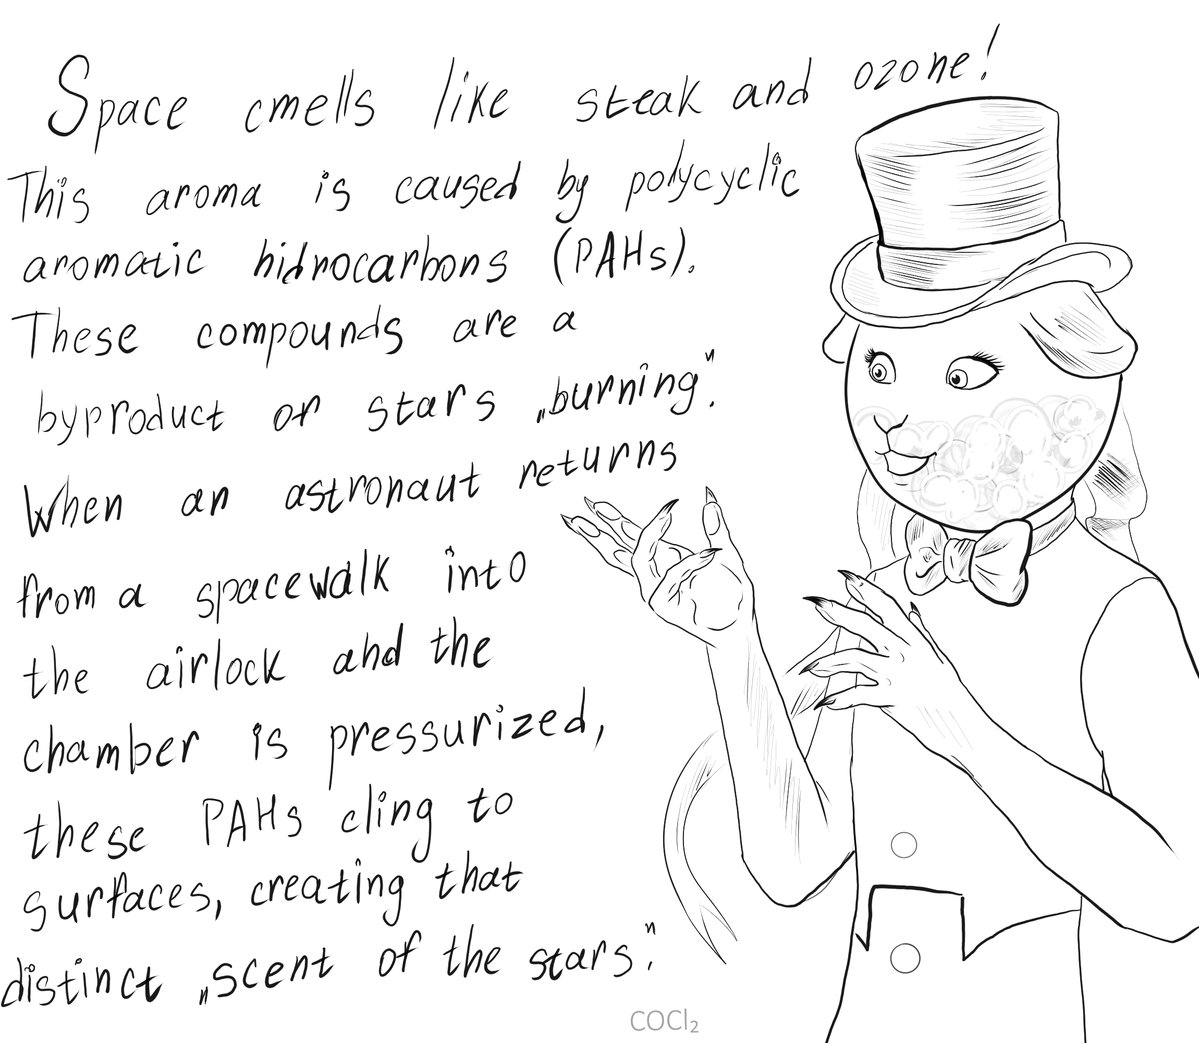 Space cmells like steak and ozone!
This aroma is caused by polycyclic
aromatic hidrocarbons (PAHs).
These compounds are a
byproduct of stars „burning".
When an astronaut returns
from a spacewalk into
the airlock and the
chamber is pressurized,
these PAHs cling to
surfaces, creating that
distinct „scent of the stars".
COCl₂